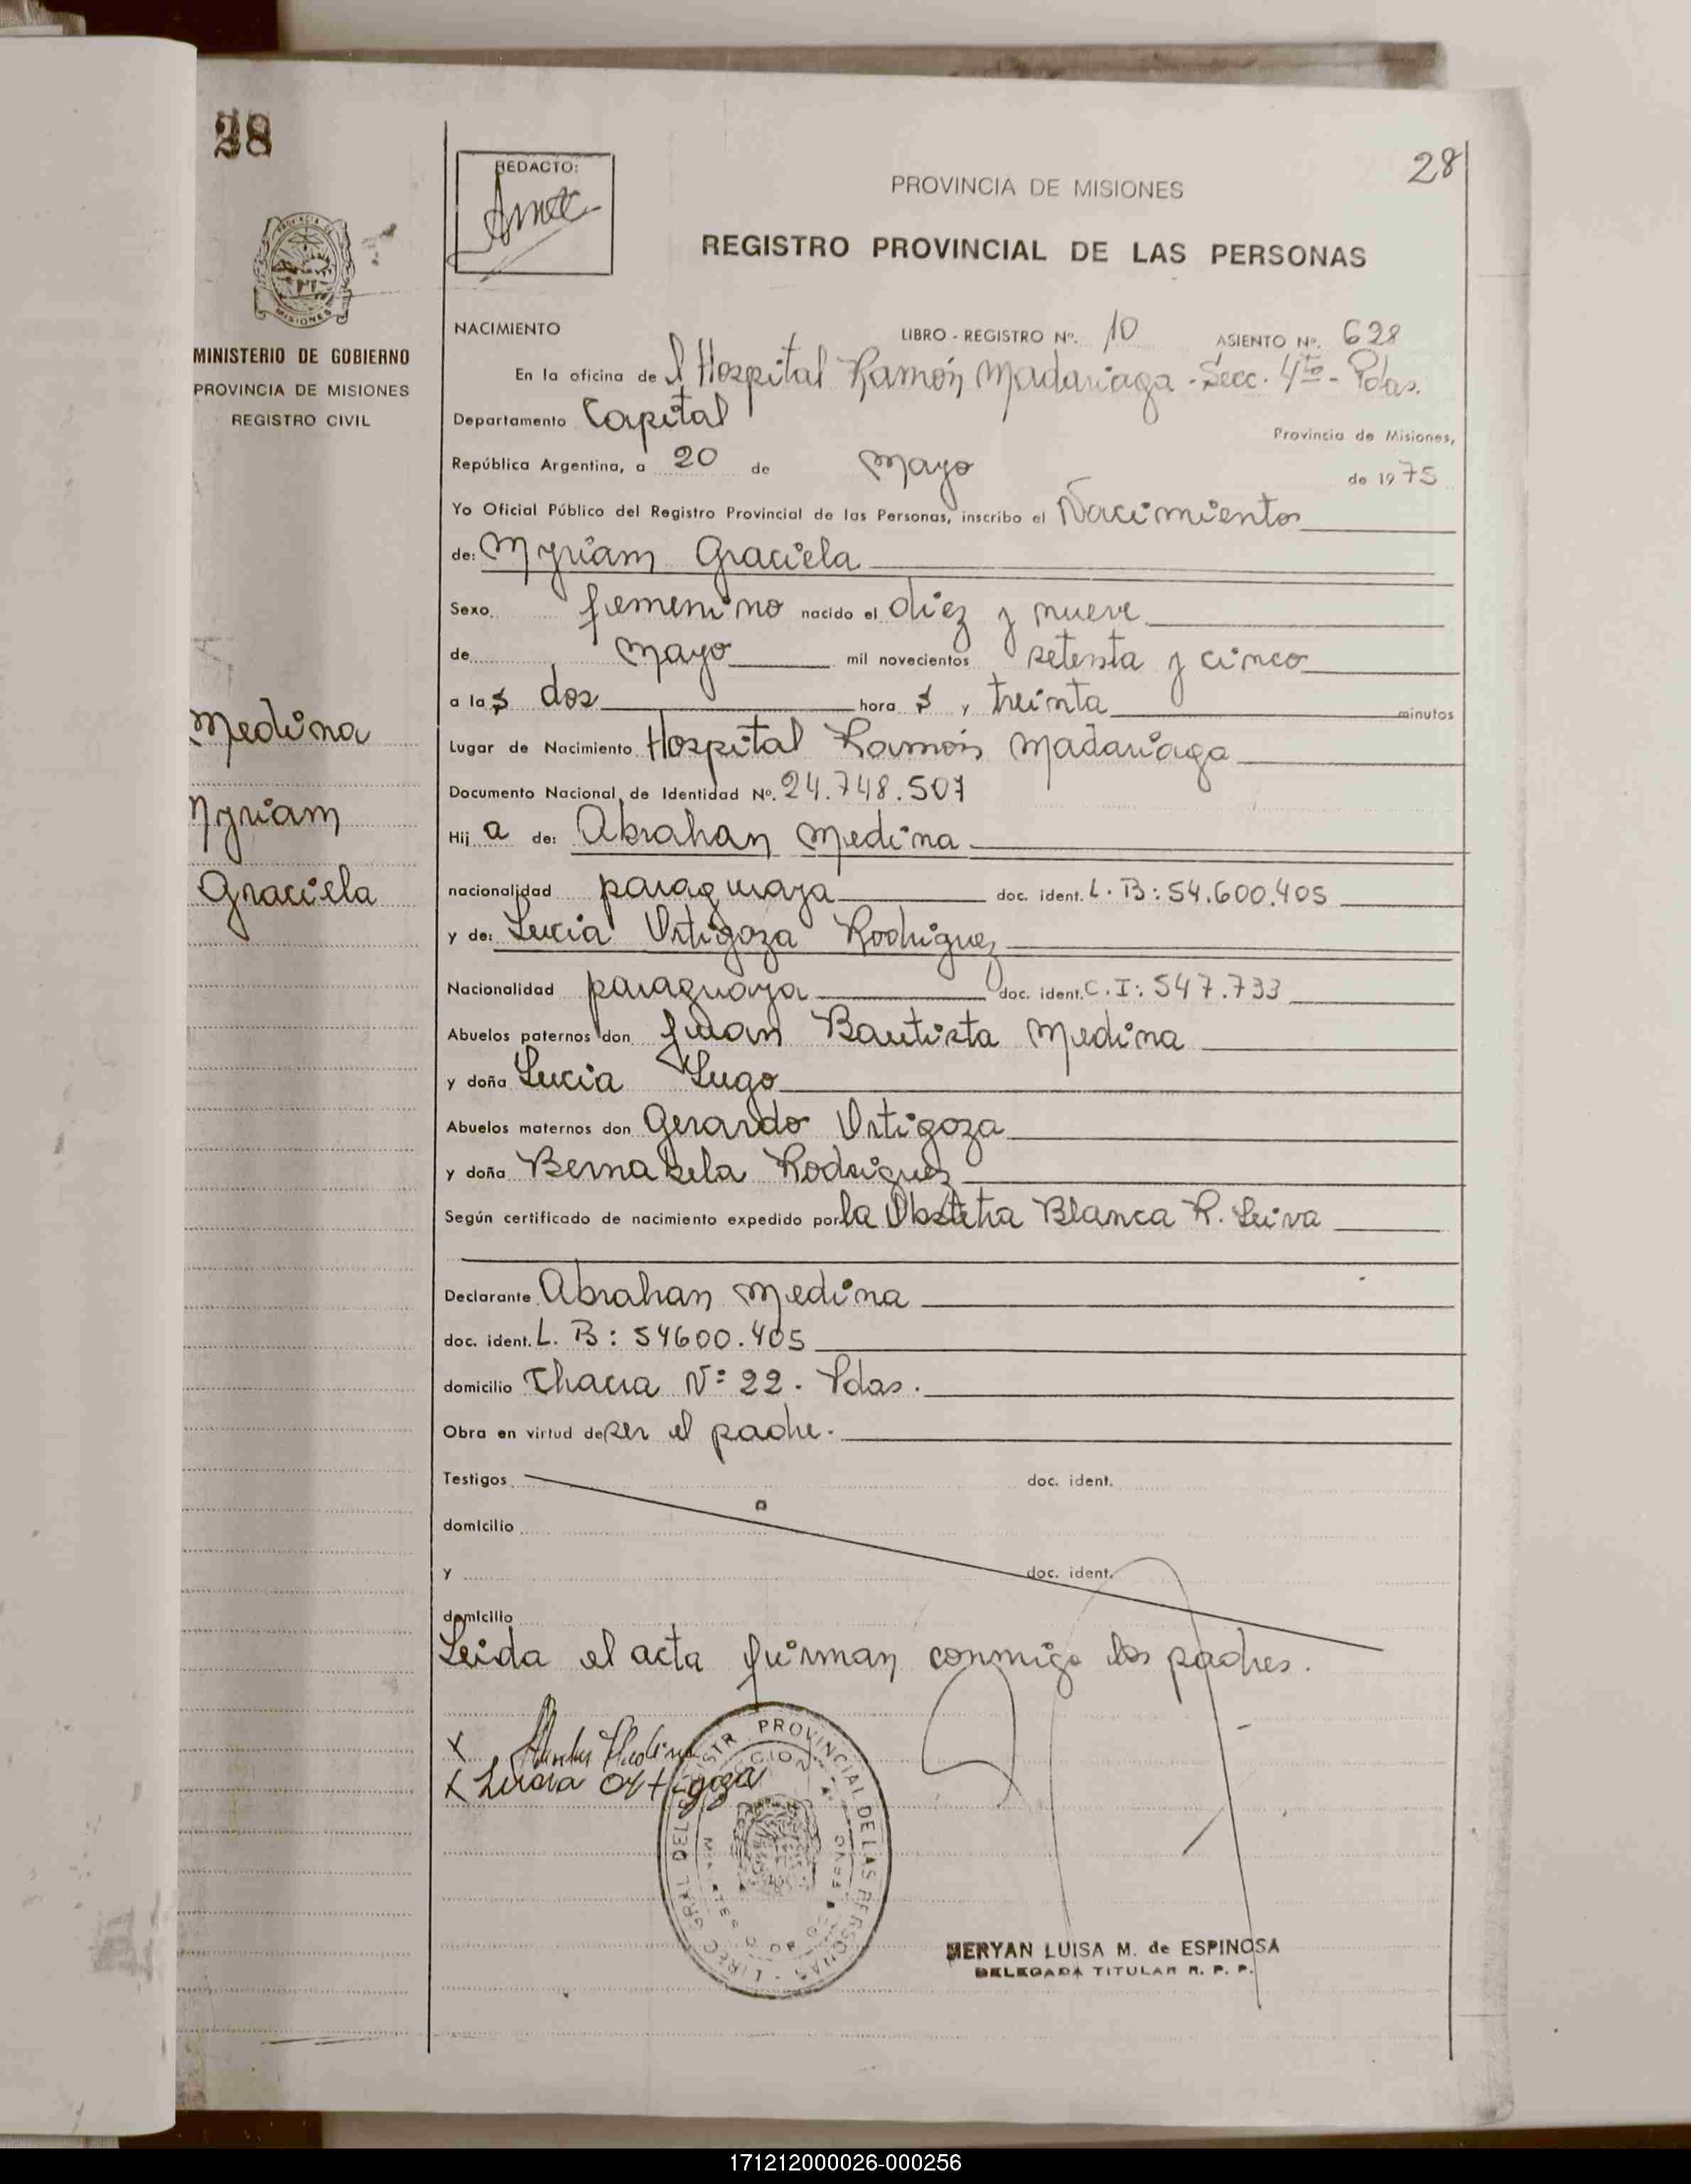 28
28
REDACTO:
PROVINCIA DE MISIONES
REGISTRO PROVINCIAL DE LAS PERSONAS
MISIONES
MINISTERIO DE GOBIERNO
PROVINCIA DE MISIONES
REGISTRO CIVIL
NACIMIENTO LIBRO - REGISTRO Nº. 10 ASIENTO Nº. 628
En la oficina de l Hospital Ramón Madariaga - Secc. 4ta - Pdas.
Departamento Capital Provincia de Misiones,
República Argentina, a 20 de Mayo de 1975
Yo Oficial Público del Registro Provincial de las Personas, inscribo el Nacimiento
de: Myriam Graciela
Sexo. femenino nacido el diez y nueve
de Mayo mil novecientos setenta y cinco
a las dos horas y treinta minutos
Lugar de Nacimiento Hospital Ramón Madariaga
Documento Nacional de Identidad Nº. 24.748.507
Hij a de: Abrahan Medina
nacionalidad paraguaya doc. ident. L. B: 54.600.405
y de: Lucia Ortigoza Rodriguez
Nacionalidad paraguaya doc. ident. C. I: 547.733
Abuelos paternos don Juan Bautista Medina
y doña Lucia Lugo
Abuelos maternos don Gerardo Ortigoza
y doña Bernabela Rodriguez
Según certificado de nacimiento expedido por la Obstetra Blanca R. Leiva
Declarante Abrahan Medina
doc. ident. L. B: 54600.405
domicilio Chacra Nº 22. Pdas.
Obra en virtud de ser el padre.
Testigos doc. ident.
domicilio
y doc. ident.
domicilio
Leida el acta firman conmigo los padres.
Medina
Myriam
Graciela
X Medina
X Lucia Ortigoza
PROVINCIAL DE LAS PERSONAS
MERYAN LUISA M. de ESPINOSA
DELEGADA TITULAR R. P. P.
171212000026-000256